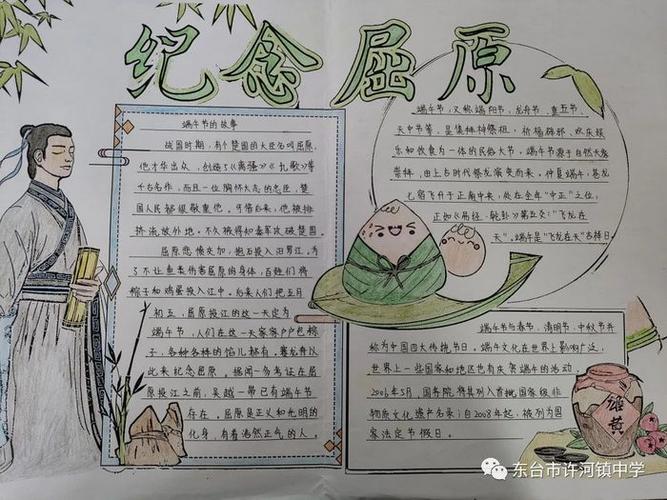 纪念屈原
端午节的故事
战国时期，有个楚国的大臣名叫屈原，
他才华出众，创造了《离骚》《九歌》等
千古名作，而且一位胸怀大志的忠臣，楚
国人民都很敬重他。可惜后来，他被排
挤流放外地。不久被得知秦军攻破楚国。
屈原悲愤交加，抱石投入汨罗江。为
了不让鱼类伤害屈原的身体，百姓们将
粽子和鸡蛋投入江中，后来人们把五月
初五，屈原投江的这一天定为
端午节，人们在这一天家家户户包粽
子，各种各样的馅儿都有。赛龙舟以
此来纪念屈原。据闻一多考证在屈
原投江之前，吴越一带已有端午节
存在。屈原是正义和光明的
化身，有着浩然正气的人。
端午节，又称端阳节，龙舟节、重五节、
天中节等，是集拜神祭祖，祈福辟邪，欢庆娱
乐和饮食为一体的民俗大节，端午节源于自然天象
崇拜，由上古时代祭龙演变而来。仲夏端午，苍龙
七宿飞升于正南中央，处在全年“中正”之位，
正如《易经·乾卦》第五爻：“飞龙在
天”。端午是“飞龙在天”吉祥日
端午节与春节，清明节，中秋节并
称为中国四大传统节日，端午文化在世界上影响广泛，
世界上一些国家和地区也有庆贺端午的活动。
2006年5月，国务院将其列入首批国家级非
物质文化遗产名录；自2008年起，被列为国
家法定节假日。
雄黄
东台市许河镇中学